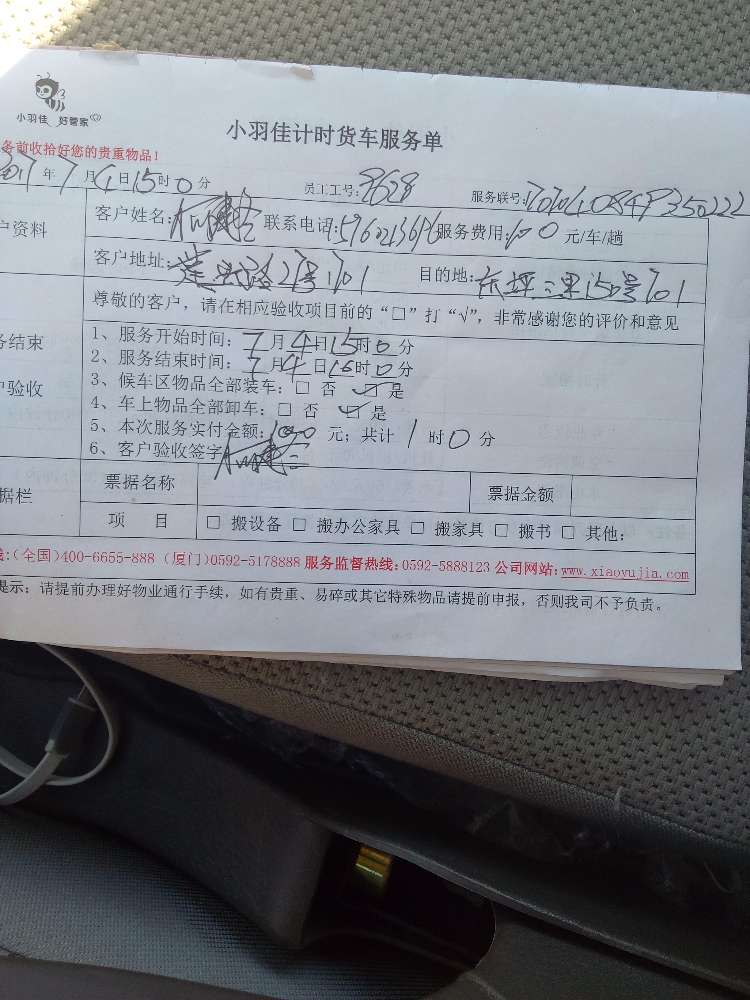 小羽佳 好管家
小羽佳计时货车服务单
务前收拾好您的贵重物品！
2017年7月4日15时0分 员工工号：8628 服务联号：
户资料 客户姓名： 联系电话： 服务费用：100元/车/趟
客户地址：莲兴路21号701 目的地：东坪三里150号701
尊敬的客户，请在相应验收项目前的“□”打“√”，非常感谢您的评价和意见
务结束
户验收
1、服务开始时间：7月4日15时0分
2、服务结束时间：7月4日16时0分
3、候车区物品全部装车：□ 否 ☑ 是
4、车上物品全部卸车：□ 否 ☑ 是
5、本次服务实付金额：100元；共计1时0分
6、客户验收签字
据栏 票据名称 票据金额
项 目 □ 搬设备 □ 搬办公家具 □ 搬家具 □ 搬书 □ 其他：
线：（全国）400-6655-888（厦门）0592-5178888 服务监督热线：0592-5888123 公司网站：www.xiaoyujia.com
提示：请提前办理好物业通行手续，如有贵重、易碎或其它特殊物品请提前申报，否则我司不予负责。